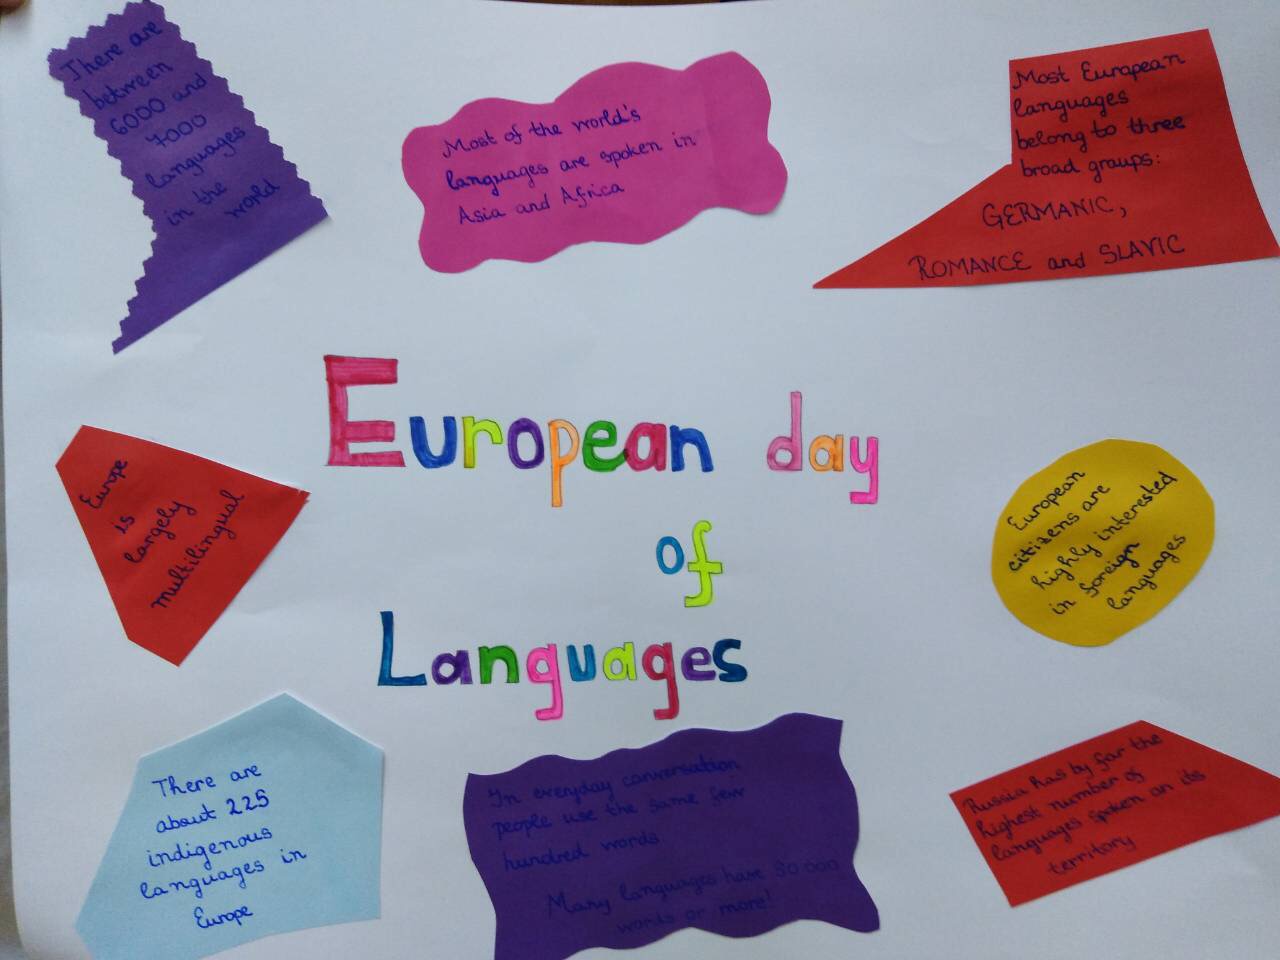 There are
between
6000 and
7000
languages
in the
world
Most of the world's
languages are spoken in
Asia and Africa
Most European
languages
belong to three
broad groups:
GERMANIC,
ROMANCE and SLAVIC
European day
of
Languages
Europe
is
largely
multilingual
European
citizens are
highly interested
in foreign
languages
There are
about 225
indigenous
languages in
Europe
In everyday conversation
people use the same few
hundred words
Many languages have 50 000
words or more!
Russia has by far the
highest number of
languages spoken on its
territory